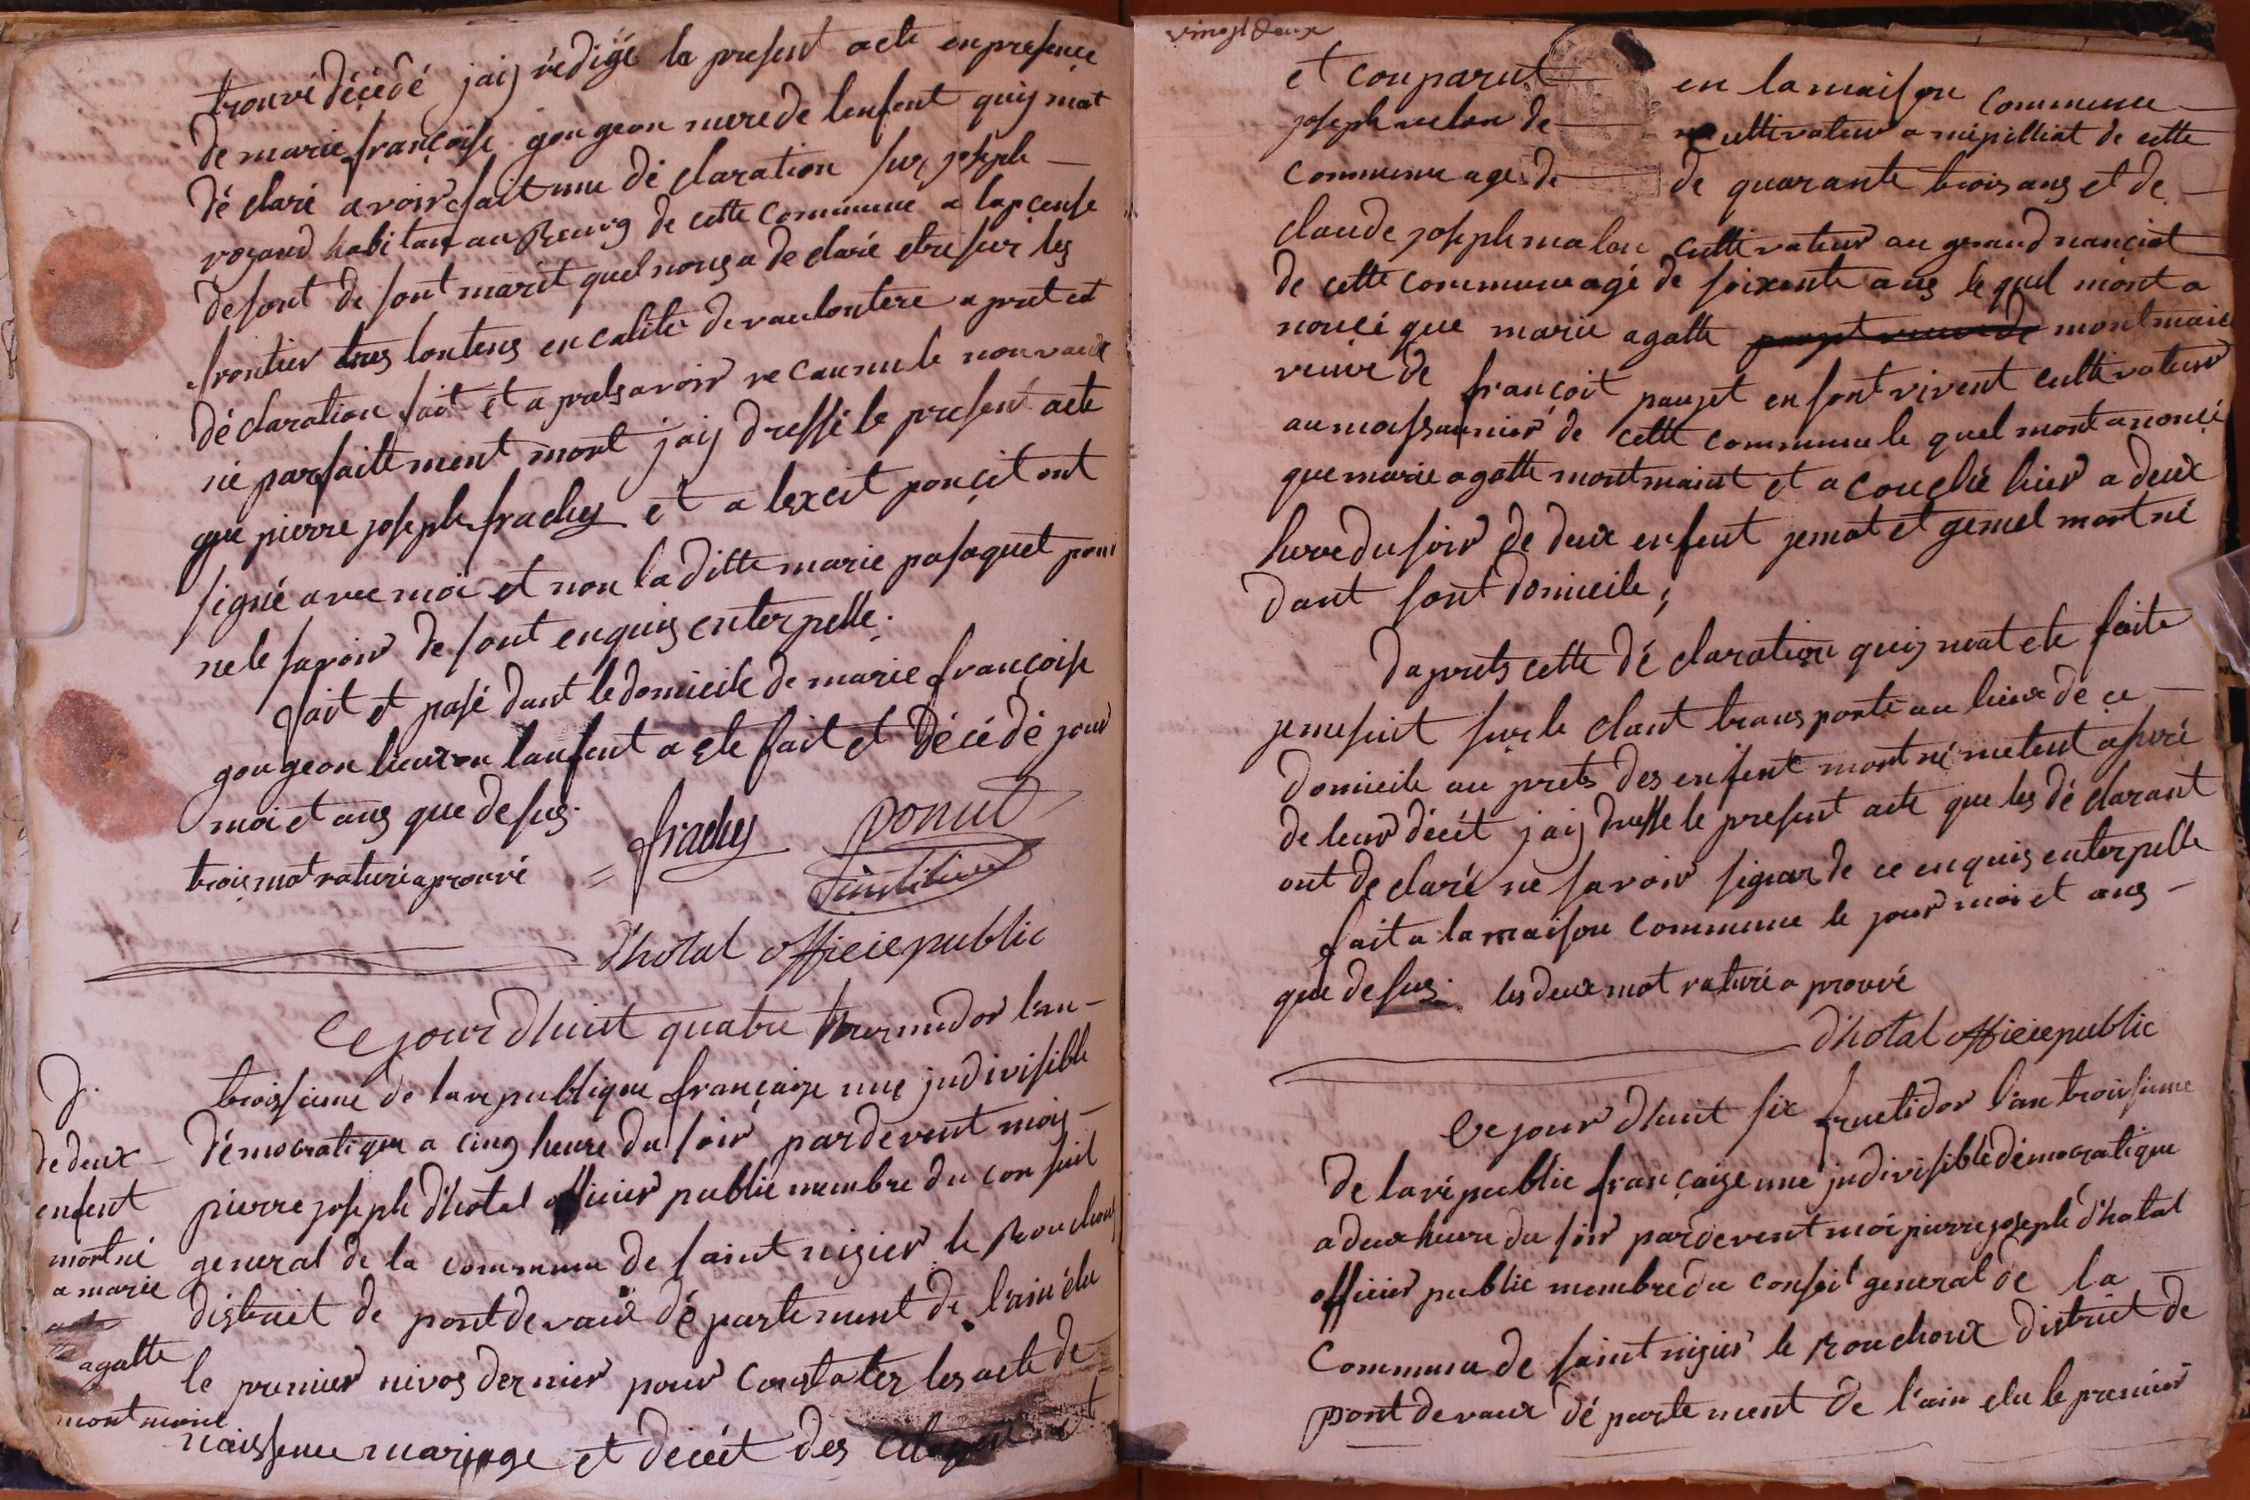 trouvé décédé jaij rédigé la present acte en presence
de marie françoise gougeon mere de lenfent quij mat
déclaré avoir fait une déclaration sur joseph
voyand habitan au Bourg de cette commune a lapcense
desont de sont marit quel nous a declaré etre sur les
frontier tres lontens en calité de vaulontere a pret cet
déclaration fait et a prets avoir recounu le nouvaux
né parfaittement mort jaij dressé le present acte
que pierre joseph frachy et alexcit poncit ont
signé avec moi et non la ditte marie pasaquet pour
ne le savoir de sont enquis enterpelle.
fait et pasé dant le domicile de marie françoise
gougeon lieux ou lanfent a ete fait et décédé jour
moi et ans que desus.
trois mot raturé aprouvé
= frachy ponut
d'hotal officie public
Ce jour dhuit quatre termidor lan
troissieme de la republique française une indivisible
démocratique a cinq heure du soir pardevent moij
pierre joseph d'hotal officier public membre du conseil
general de la commune de saint nizier le Bouchoux
district de pontdevaux département de l'ain élu
le premier nivos dernier pour constater les acte de
naissence mariage et décéit des citoyen
D.
de deux
enfent
mort né
a marie
agatte
montmaint
vingt deux
et conparut en la maison commune
joseph velon de cultivateur a mépilliat de cette
commune age de de quarante trois ans et de
claude joseph malon cultivateur au grand nanciat
de cette commune agé de soixente ans le quel mont a
noncé que marie agatte montmain
veuve de françoit pauget en sont vivent cultivateur
au massaunier de cette commune le quel mont anoncé
que marie agatte montmaint et acouché hier a deux
heure du soir de deux enfent jemot et gemel mort né
dant sont domicile;
daprets cette déclaration quij mat ete faite
je me suit sur le chant transporté au lieux de ce
domicile au prets des enfent mort né metent asuré
de leur décéit jaij dresse le present acte que les déclarant
ont declaré ne savoir signer de ce enquis enterpelle
fait a la maison commune le jour moi et ans
que desus. les deux mot raturé a prouvé
d'hotal officie public
Ce jour dhuit six fructidor l'an troissieme
de la républic française une indivisible démocratique
a deux heure du soir pardevent moi pierre joseph d'hotal
officier public membre du conseil general de la
commune de saint nizier le Bouchoux district de
pont devaux département de l'ain elu le premier